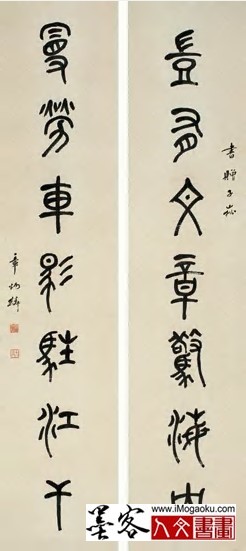 書贈子
豈有文章驚海内
曼勞車馬駐江干
章炳麟
www.iMogaoku.com
墨客人文書畫